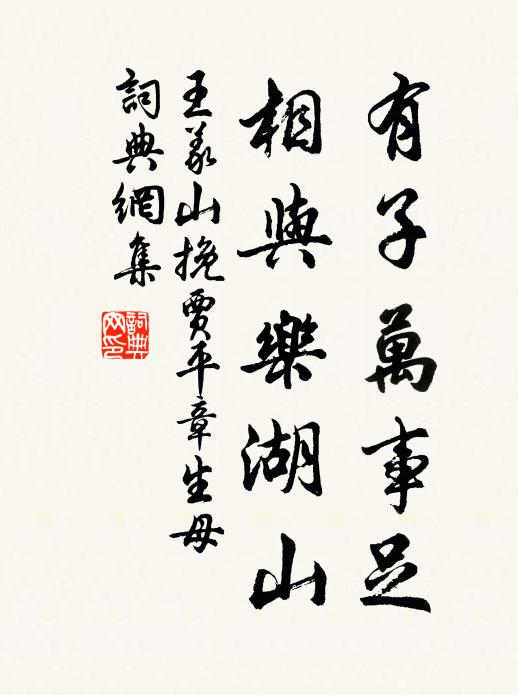 有子萬事足
相與樂湖山
王義山挽賈平章生母
詞典網集
詞典網印